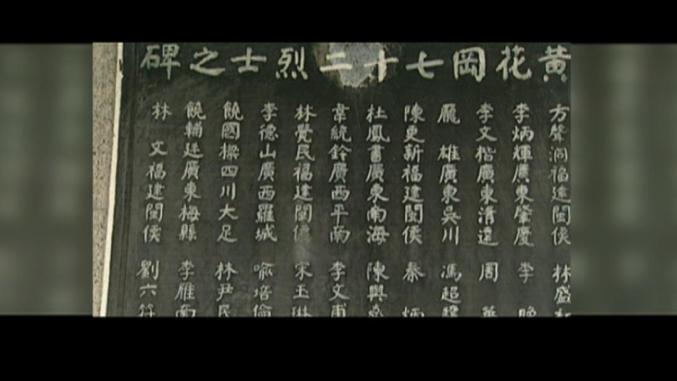 黃花岡七十二烈士之碑
方聲洞福建閩侯 林盛
李炳輝廣東肇慶 李 晚
李文楷廣東清遠 周 華
龐 雄廣東吳川 馮超驤
陳更新福建閩侯 秦 炳
杜鳳書廣東南海 陳與燊
韋統鈴廣西平南 李文甫
林覺民福建閩侯 宋玉琳
李德山廣西羅城 喻培倫
饒國樑四川大足 林尹民
饒輔廷廣東梅縣 李雁南
林 文福建閩侯 劉六符